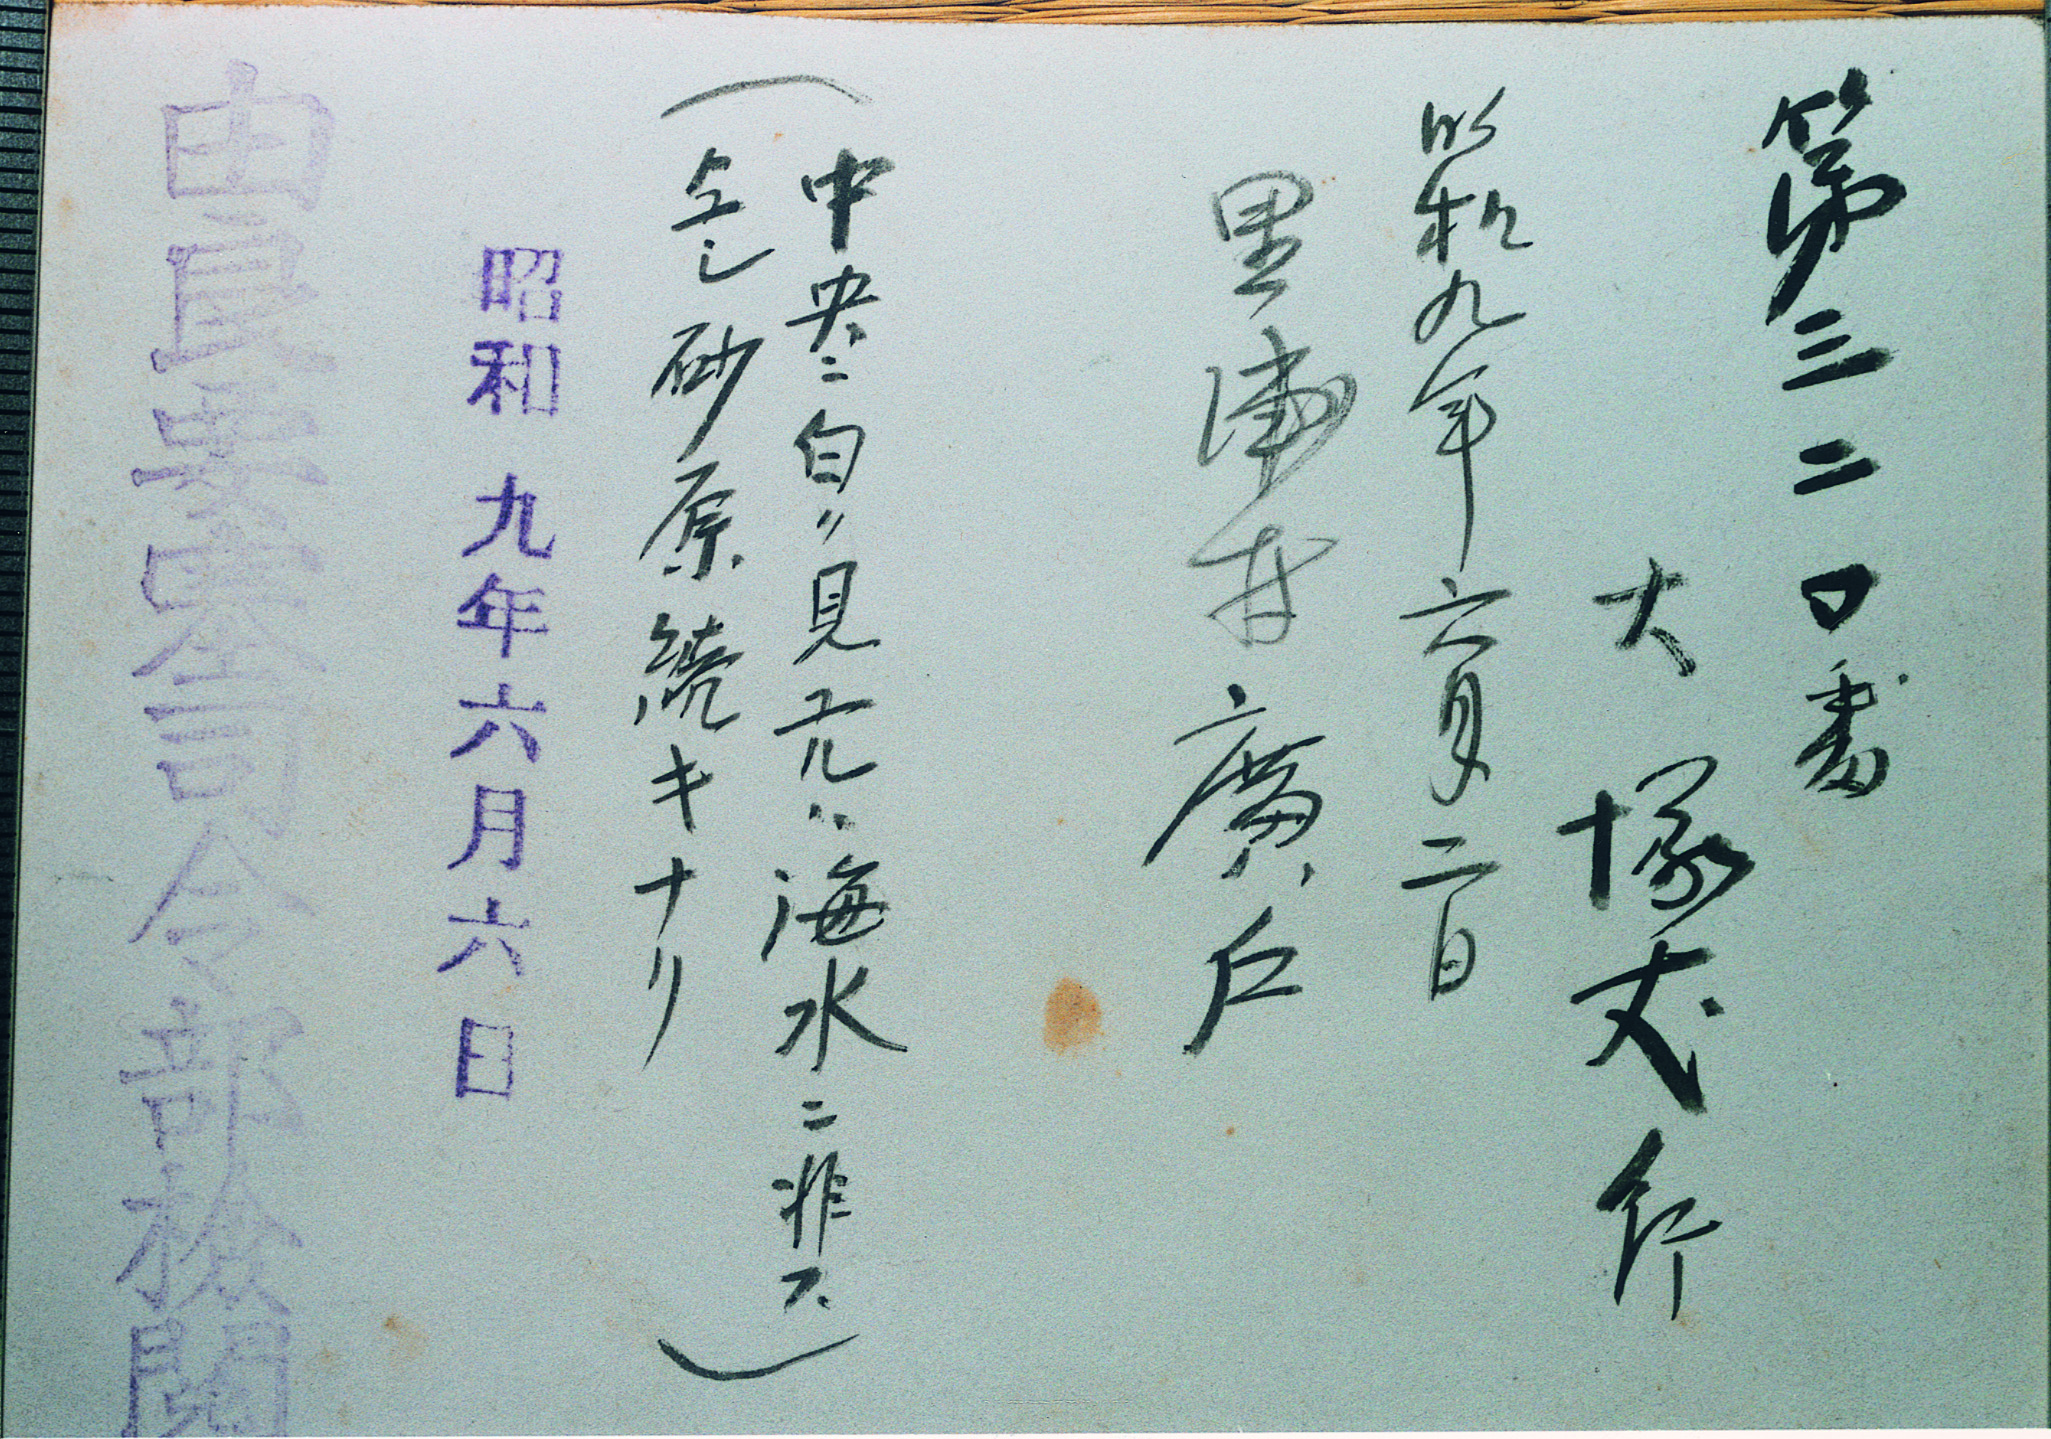 第三二〇番
大塚丈行
昭和九年六月二日
里浦村廣戸
(中央ニ白ク見エルハ海水ニ非ス
仝シ砂原続キナリ)
昭和九年六月六日
由良要塞司令部檢閲